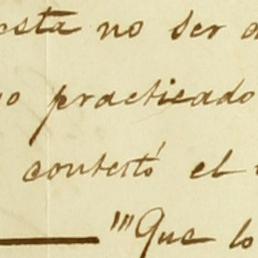 esta no ser
practicado
contestó el
"'Que lo